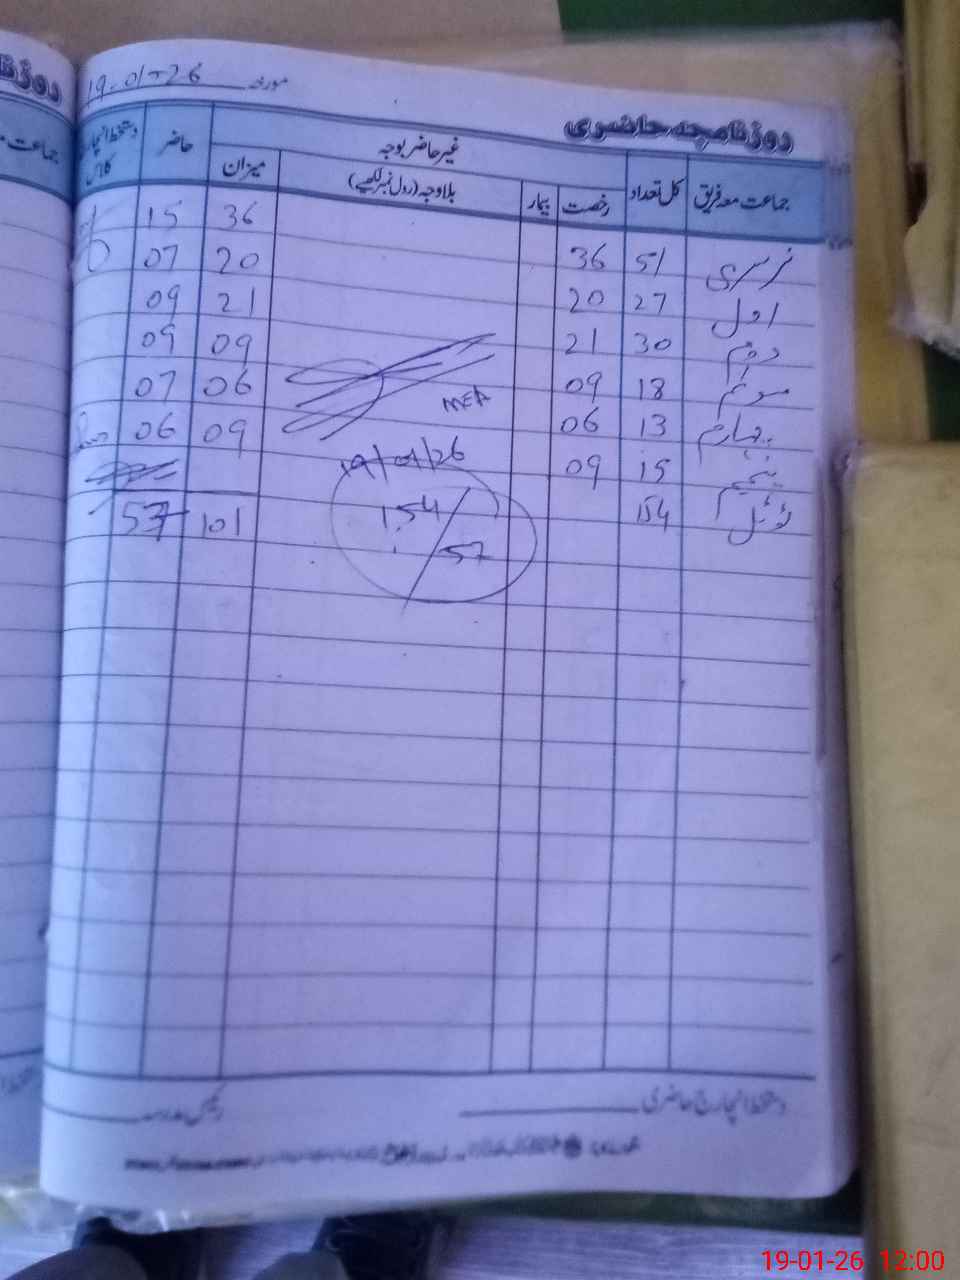 مورخہ 19-01-26
روزنامچہ حاضری
جماعت معہ فریق کل تعداد غیر حاضر بوجہ حاضر دستخط انچارج کلاس
رخصت بیمار بلاوجہ (رول نمبر لکھیے) میزان
نرسری 51 36 36 15
اول 27 20 20 07
دوم 30 21 21 09
سوئم 18 09 09 09
چہارم 13 06 06 07
پنجم 15 09 09 06
ٹوٹل 154 101 57
MEA
19/01/26
154/57
دستخط انچارج حاضری
رئیس مدرسہ
19-01-26 12:00